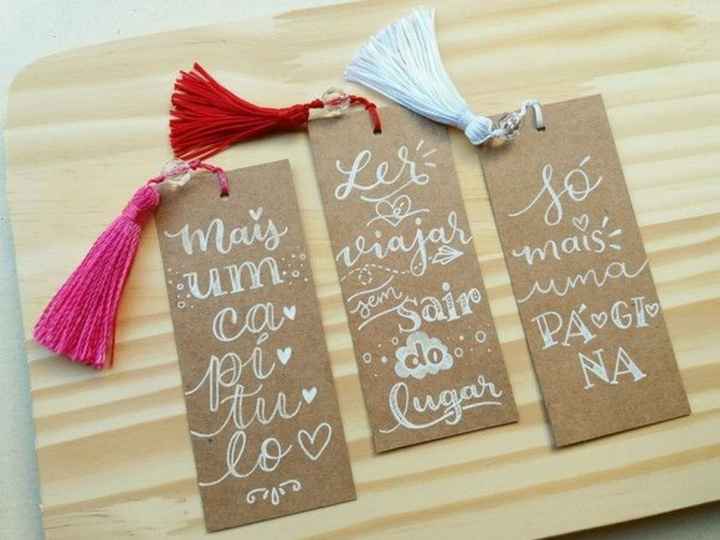 Mais
um
ca
pí
tu
lo
Ler
é
viajar
sem
sair
do
lugar
Só
mais
uma
PÁ GI
NA